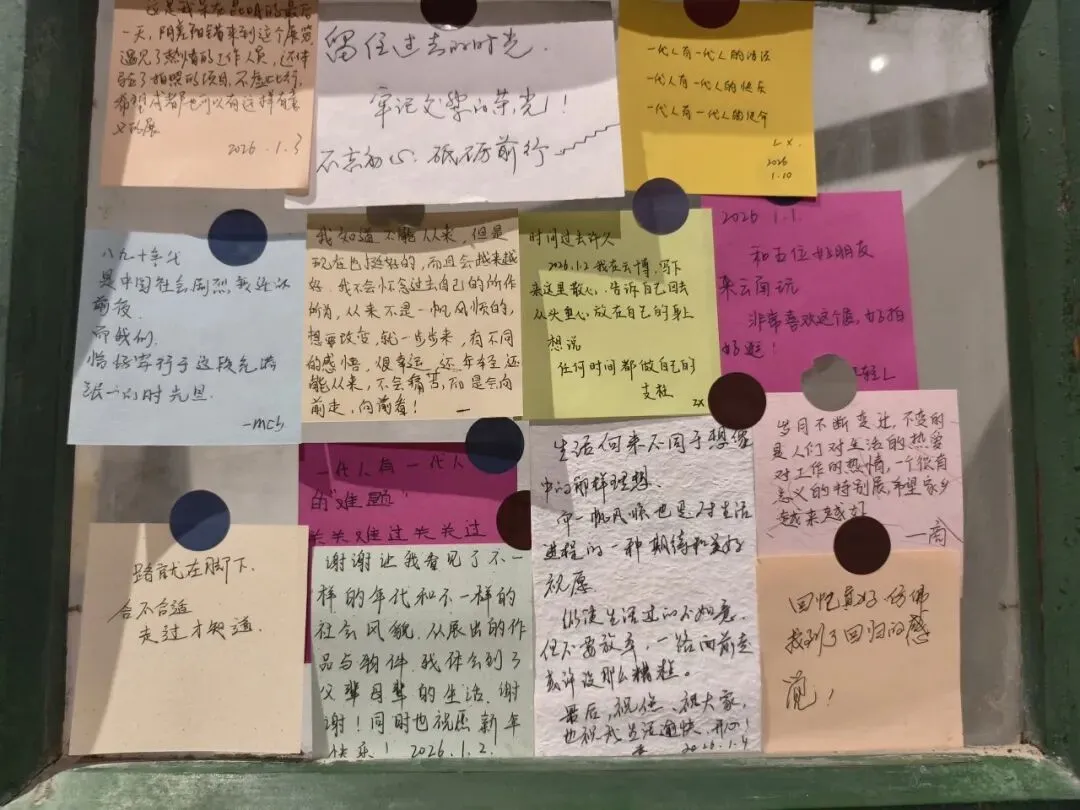 这是我来在昆明的最后
一天,阴差阳错来到这个展览
遇见了热情的工作人员,还体
验了拍照的项目,不虚此行,
希望成都也可以有这样有意
义的展
2026.1.3
留住过去的时光.
牢记文学的荣光!!
不忘初心.砥砺前行
一代人有一代人的活法
一代人有一代人的快乐
一代人有一代人的使命
LX.
2026
1.10
八九十年代
是中国社会剧烈
前夜.
而我们.
恰好
的时光里.
-mch
我知道不能从来,但是
现在也挺好的,而且会越来越
好.我不会怀念过去自己的所作
所为,从来不是一帆风顺的,
想要改变,就一步步来,有不同
的感悟,很幸运,还年轻还
能从来,不会痛苦,而是会向
前走,向前看!
时间过去许久
2026.1.2 我在云博,写下
来这里散心.告诉自己回去
从头重心放在自己的身上
想说
任何时间都做自己的
支柱
ZX
2026 1.1.
和五位好朋友
来云南玩
非常喜欢这个展,好拍
好逛!
年轻L
岁月不断变迁,不变的
是人们对生活的热爱
对工作的热情,一个很有
意义的特别展,希望家乡
越来越好
一代人有一代人
的"难题"
关关难过关关过
生活向来不同于想像
中的那样理想.
而一帆风顺也是对生活
进程的一种期待和美好
祝愿
纵使生活过的不如意
但不要放弃,一路向前走
或许没那么糟糕.
最后,祝您、祝大家,
也祝我生活愉快、开心!
2026.1.4
路就在脚下.
合不合适
走过才知道.
谢谢让我看见了不一
样的年代和不一样的
社会风貌.从展出的作
品与物件.我体会到了
父辈母辈的生活.谢
谢!同时也祝愿新年
快乐! 2026.1.2.
回忆真好,仿佛
找到了回归的感
觉!